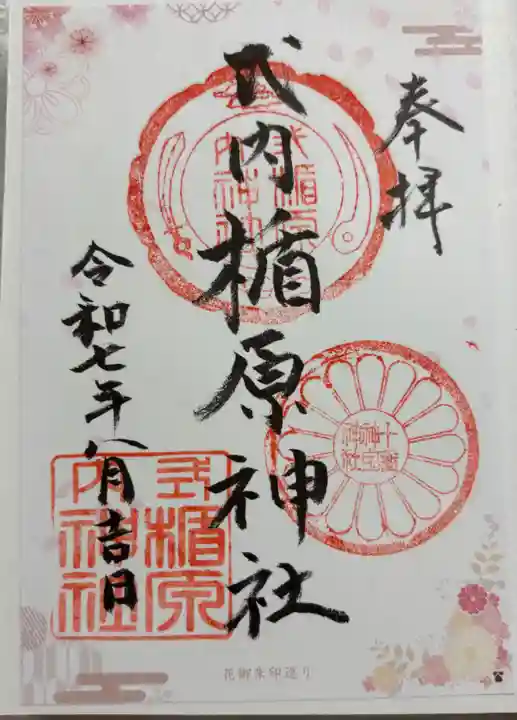 奉拝
式内楯原神社
令和七年八月吉日
式内楯原神社
式内楯原神社
花御朱印巡り